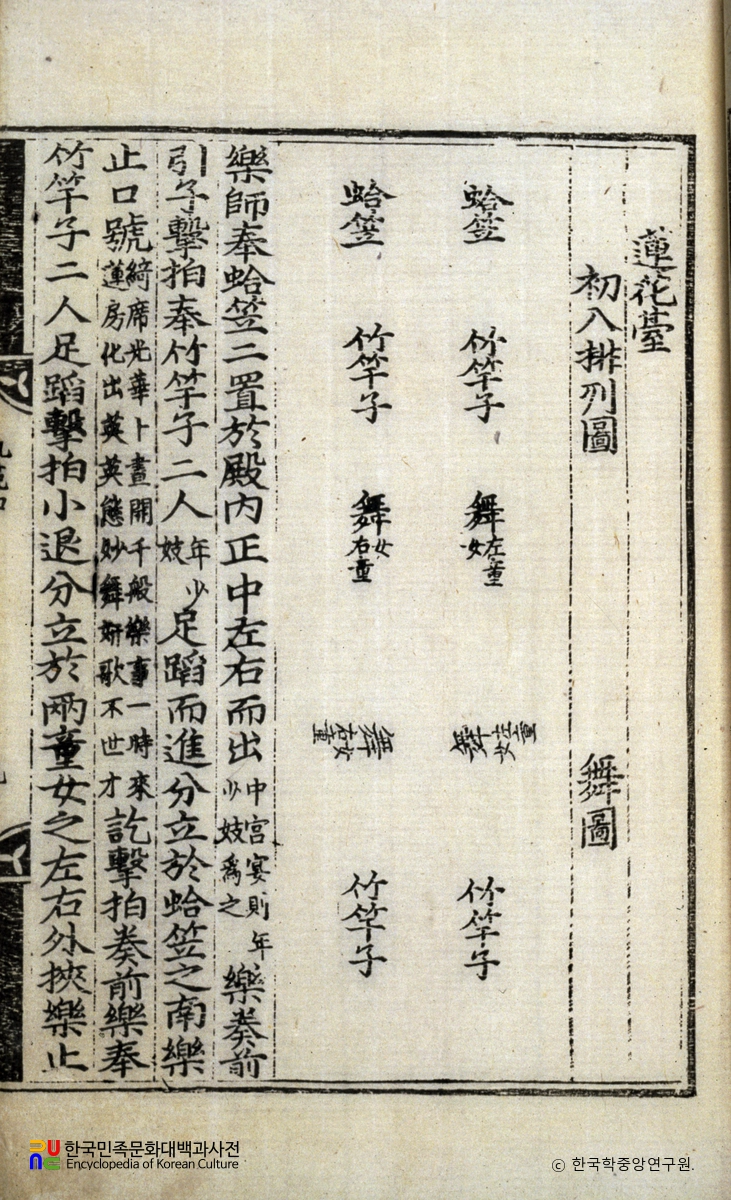 蓮花臺
初入排列圖 舞圖
蛤笠 竹竿子 舞 左童女 舞 左童女 竹竿子
蛤笠 竹竿子 舞 右童女 舞 右童女 竹竿子
樂師奉蛤笠二置於殿內正中左右而出 中宮宴則年少妓爲之 樂奏前
引子擊拍奉竹竿子二人 年少妓 足蹈而進分立於蛤笠之南樂
止口號 綺席光華卜晝開千般樂事一時來蓮房化出英英態妙舞姸歌不世才 訖擊拍奏前樂奉
竹竿子二人足蹈擊拍小退分立於兩童女之左右外挾樂止
한국민족문화대백과사전
Encyclopedia of Korean Culture
ⓒ 한국학중앙연구원.